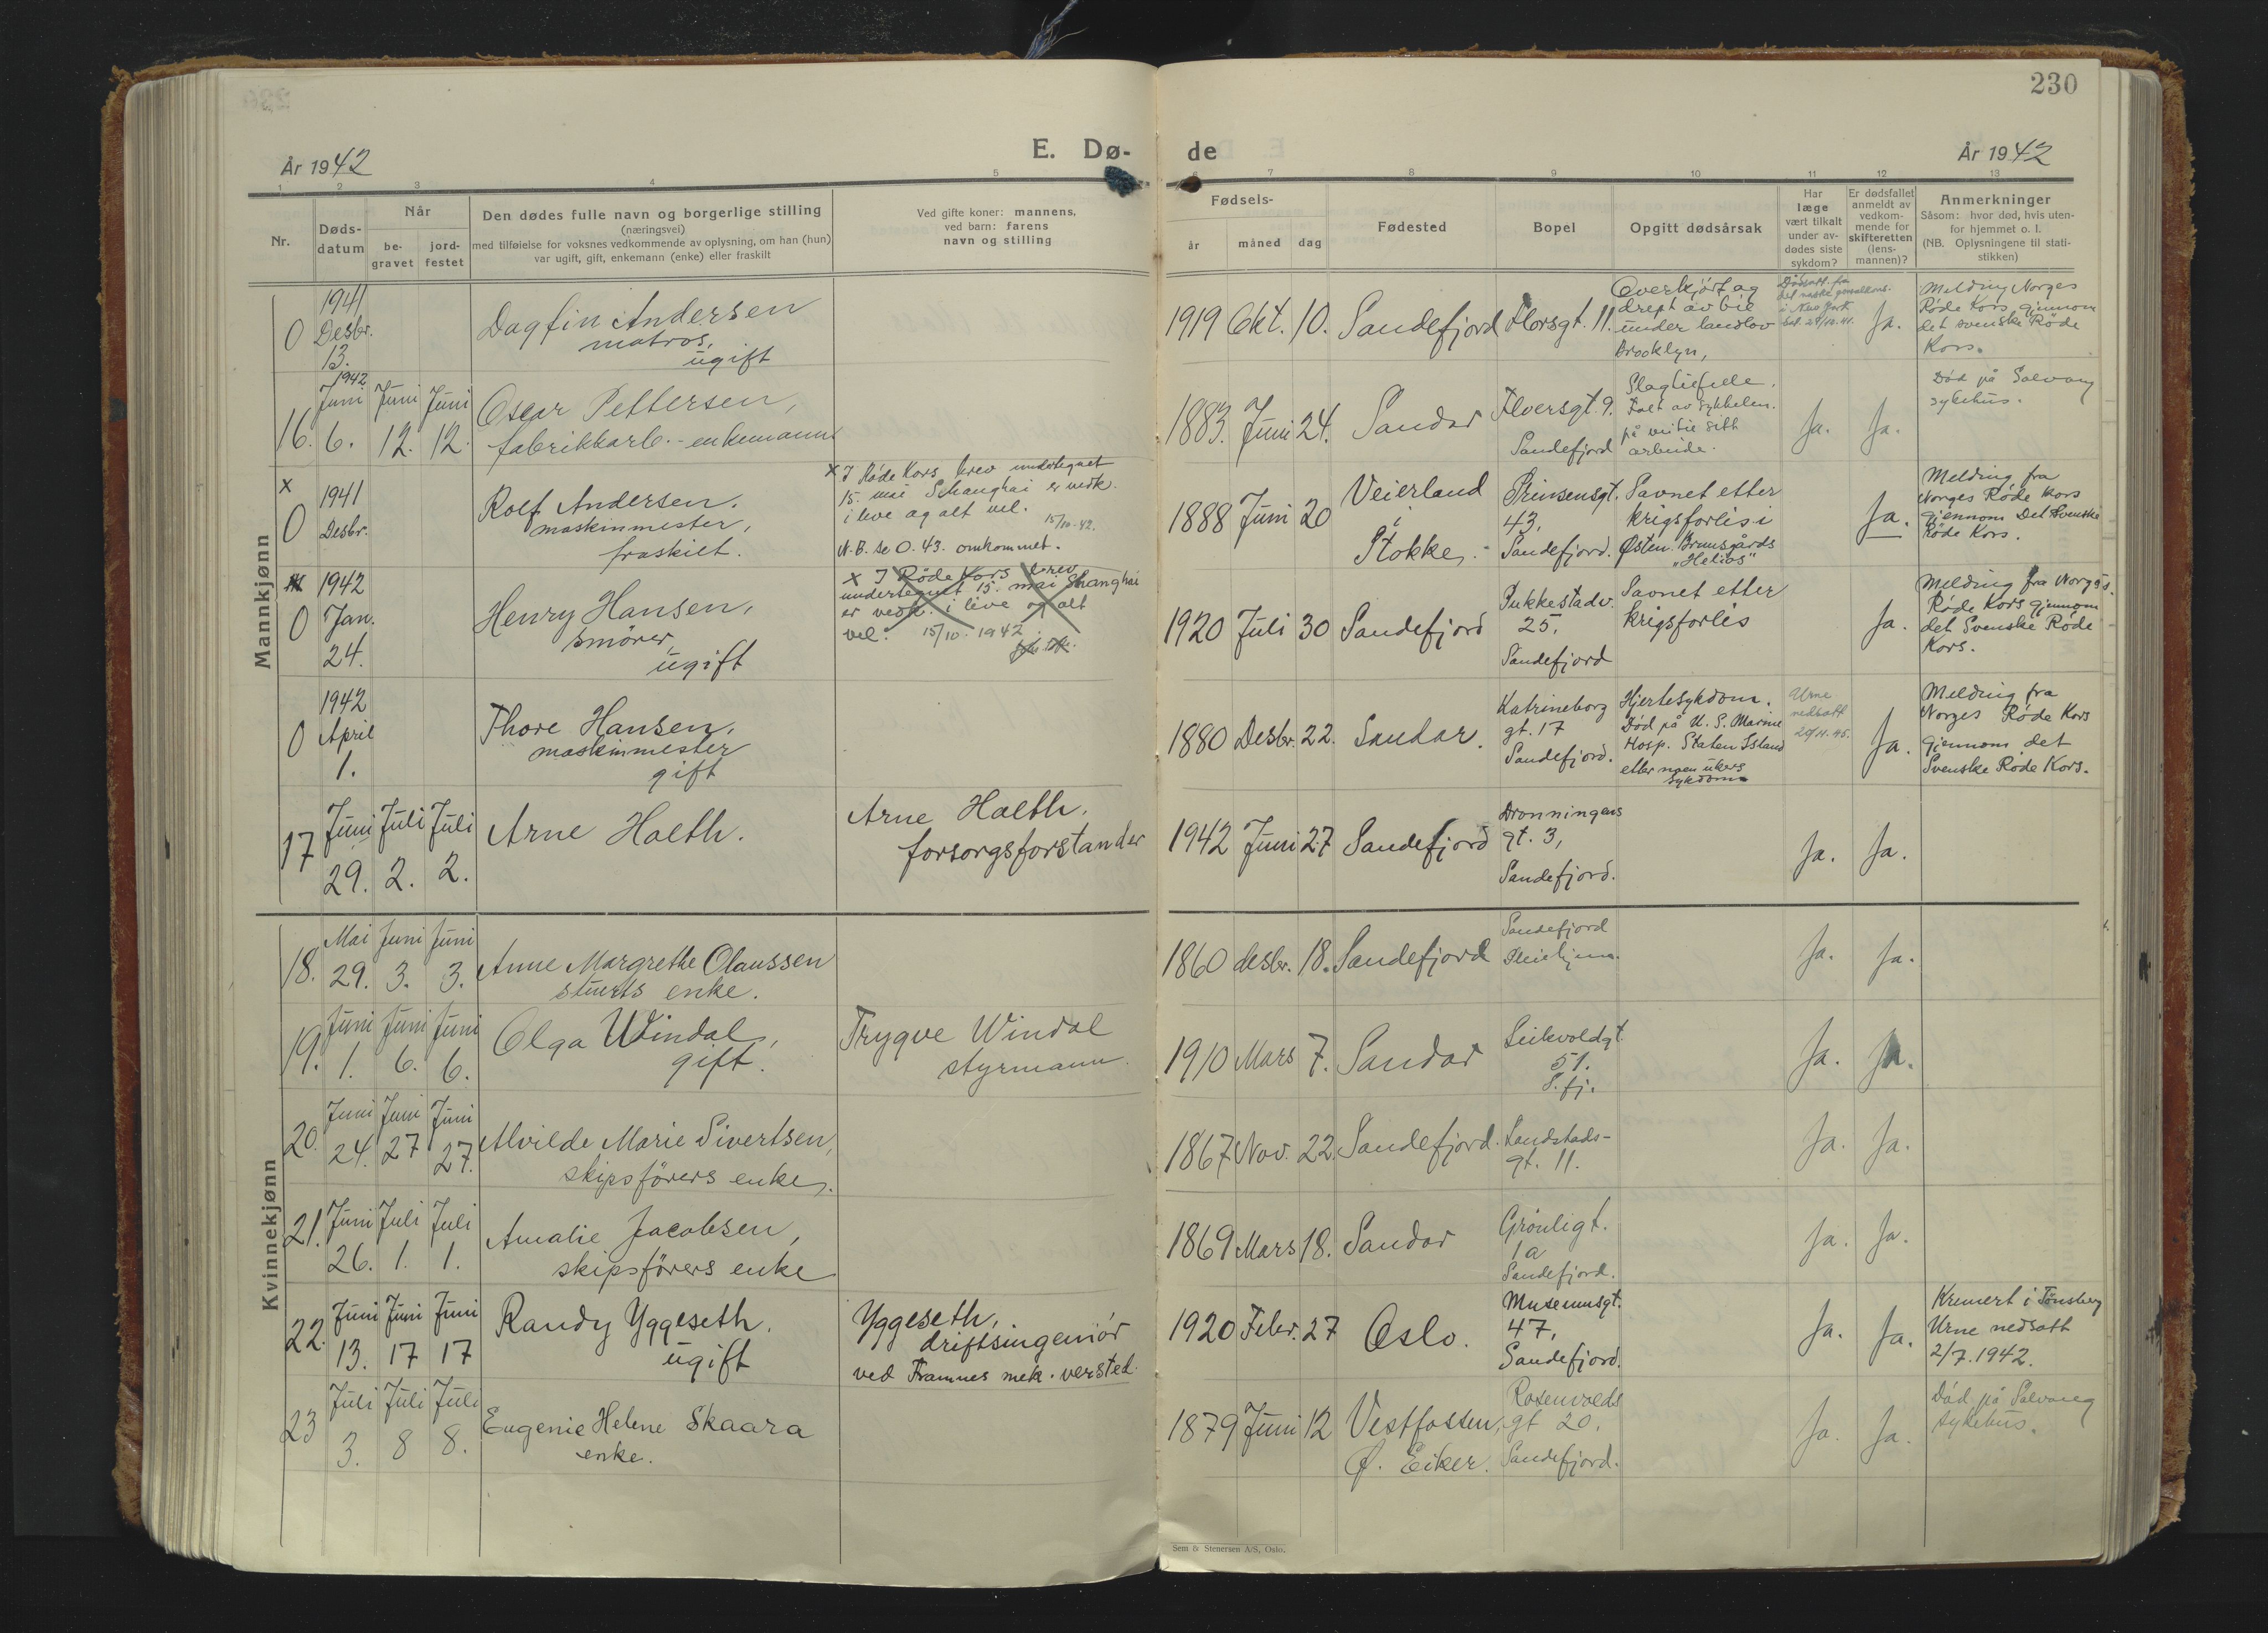 230
År 1942
E. Dø-
de
År 1942
1 2 3 4 5
6 7 8 9 10 11 12 13
Nr.
Døds-
datum
Når
be-
gravet
jord-
festet
Den dødes fulle navn og borgerlige stilling
(næringsvei)
med tilføielse for voksnes vedkommende av oplysning, om han (hun)
var ugift, gift, enkemann (enke) eller fraskilt
Ved gifte koner: mannens,
ved barn: farens
navn og stilling
Fødsels-
år måned dag
Fødested
Bopel
Opgitt dødsårsak
Har
læge
vært tilkalt
under av-
dødes siste
sykdom?
Er dødsfallet
anmeldt av
vedkom-
mende for
skifteretten
(lens-
mannen)?
Anmerkninger
Såsom: hvor død, hvis uten-
for hjemmet o. l.
(NB. Oplysningene til stati-
stikken)
Mannkjønn
0
1941
Desbr.
13.
Dagfin Andersen
matros,
ugift
1919 Okt. 10. Sandefjord
Overkjørt og
drept av bil
under landlov
Brooklyn,
i New York
Ja.
Melding Norges
Røde Kors gjennom
det svenske Røde
Kors.
16.
1942
Juni
6.
Juni
12.
Juni
12.
Oscar Pettersen,
fabrikkarb. - enkemann
1883. Juni 24. Sandar
Sandefjord
Slagtilfelle.
Falt av sykkelen.
på vei til sitt
arbeide.
Ja. Ja.
Død på Solvang
sykehus.
x
0
1941
Desbr.
Rolf Andersen.
maskinmester,
fraskilt.
x I Røde Kors brev undertegnet
15. mai Schanghai er vedk.
i live og alt vel.
15/10-42.
N.B. se O. 43. omkommet.
1888 Juni 20
Veierland
i
Stokke.
Prinsensgt.
43,
Sandefjord.
Savnet etter
krigsforlis i
Østen. Bruusgårds
"Helios"
Ja.
Melding fra
Norges Røde Kors
gjennom Det Svenske
Røde Kors.
0
1942
Jan.
24.
Henry Hansen,
smører,
ugift
x I Røde Kors brev
undertegnet 15. mai Shanghai
er vedk. i live og alt
vel. 15/10. 1942.
1920 Juli 30 Sandefjord
Pukkestadv.
25.
Sandefjord
Savnet etter
krigsforlis
Ja.
Melding fra Norges
Røde Kors gjennom
det Svenske Røde
Kors.
0
1942
April
1.
Thore Hansen,
maskinmester
gift
1880 Desbr. 22. Sandar.
Katrineborg
gt. 17
Sandefjord.
Hjertesykdom.
Død på U. S. Marine
Hosp. Staten Island
etter noen ukers
sykdom
Urne
nedsatt
Ja.
Melding fra
Norges Røde Kors
gjennom det
Svenske Røde Kors.
17
Juni
29.
Juli
2.
Juli
2.
Arne Holth.
Arne Holth.
forsorgsforstander
1942 Juni 27 Sandefjord
Dronningens
gt. 3,
Sandefjord.
Ja. Ja.
Kvinnekjønn
18.
Mai
29.
Juni
3.
Juni
3.
Anne Margrethe Olaussen
stuerts enke.
1860 desbr. 18. Sandefjord
Sandefjord
Pleiehjem.
Ja. Ja.
19.
Juni
1.
Juni
6.
Juni
6.
Olga Windal,
gift.
Trygve Windal
styrmann.
1910 Mars 7. Sandar
51.
S. fj.
Ja. Ja.
20.
Juni
24.
Juni
27
Juni
27.
Alvilde Marie Sivertsen,
skipsførers enke.
1867 Nov. 22. Sandefjord.
Landstads-
gt. 11.
Ja. Ja.
21.
Juni
26.
Juli
1.
Juli
1.
Amalie Jacobsen,
skipsførers enke
1869 Mars 18. Sandar
Grønligt.
1a
Sandefjord.
Ja. Ja.
22.
Juni
13.
Juni
17
Juni
17
Randy Yggeseth.
ugift
Yggeseth,
driftsingeniør
ved Framnes mek. versted.
1920 Febr. 27 Oslo.
Museumsgt.
47,
Sandefjord.
Ja. Ja.
Kremert i Tønsberg
Urne nedsatt
2/7. 1942.
23
Juli
3.
Juli
8
Juli
8.
Eugenie Helene Skaara
enke.
1879 Juni 12
Vestfossen,
Ø. Eiker.
Rosenvolds
gt 20.
Sandefjord.
Ja. Ja.
Død på Solvang
sykehus.
Sem & Stenersen A/S, Oslo.